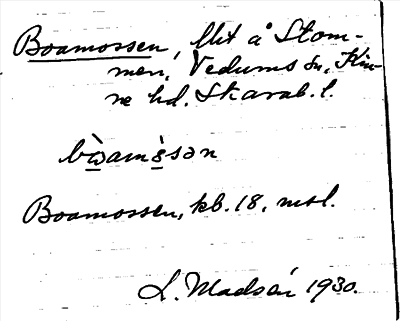 Boamossen, llit å Stom-
men, Vedums sn, Kin-
ne hd. Skarab. l.
Boamossen, kb. 18, msl.
L. Madsén 1930.